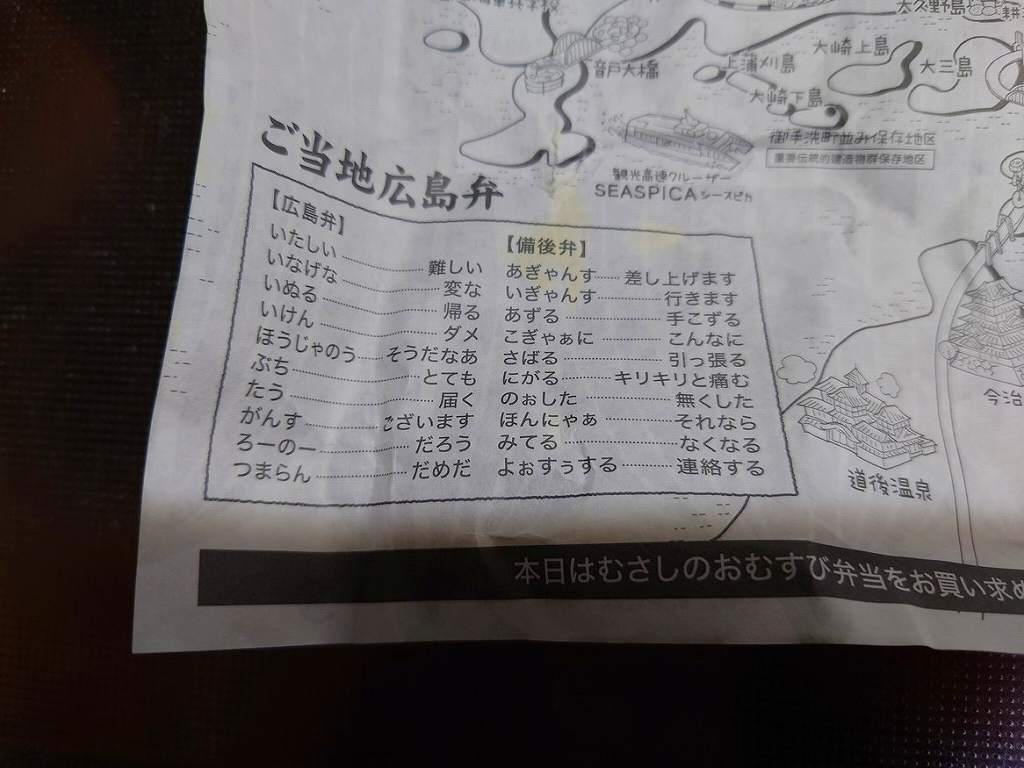 大久野島
大崎上島
音戸大橋
上蒲刈島
大三島
大崎下島
御手洗町並み保存地区
重要伝統的建造物群保存地区
観光高速クルーザー
SEASPICA シースピカ
ご当地広島弁
【広島弁】
いたしい……難しい
いなげな……変な
いぬる……帰る
いけん……ダメ
ほうじゃのう……そうだなあ
ぶち……とても
たう……届く
がんす……ございます
ろーのー……だろう
つまらん……だめだ
【備後弁】
あぎゃんす……差し上げます
いぎゃんす……行きます
あずる……手こずる
こぎゃぁに……こんなに
さばる……引っ張る
にがる……キリキリと痛む
のぉした……無くした
ほんにゃぁ……それなら
みてる……なくなる
よぉすぅする……連絡する
今治
道後温泉
本日はむさしのおむすび弁当をお買い求め